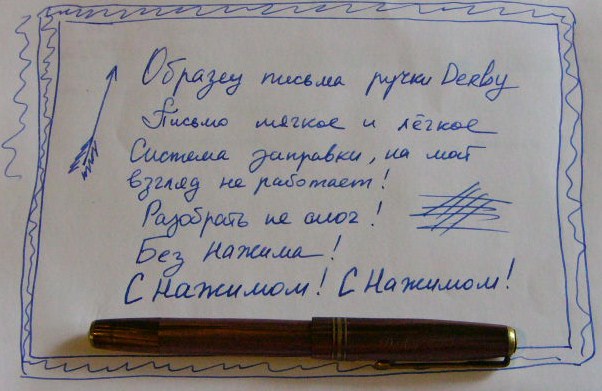 Образец письма ручки Derby
Письмо мягкое и лёгкое
Система заправки, на мой
взгляд не работает!
Разобрать не смог!
Без нажима!
С нажимом! С нажимом!